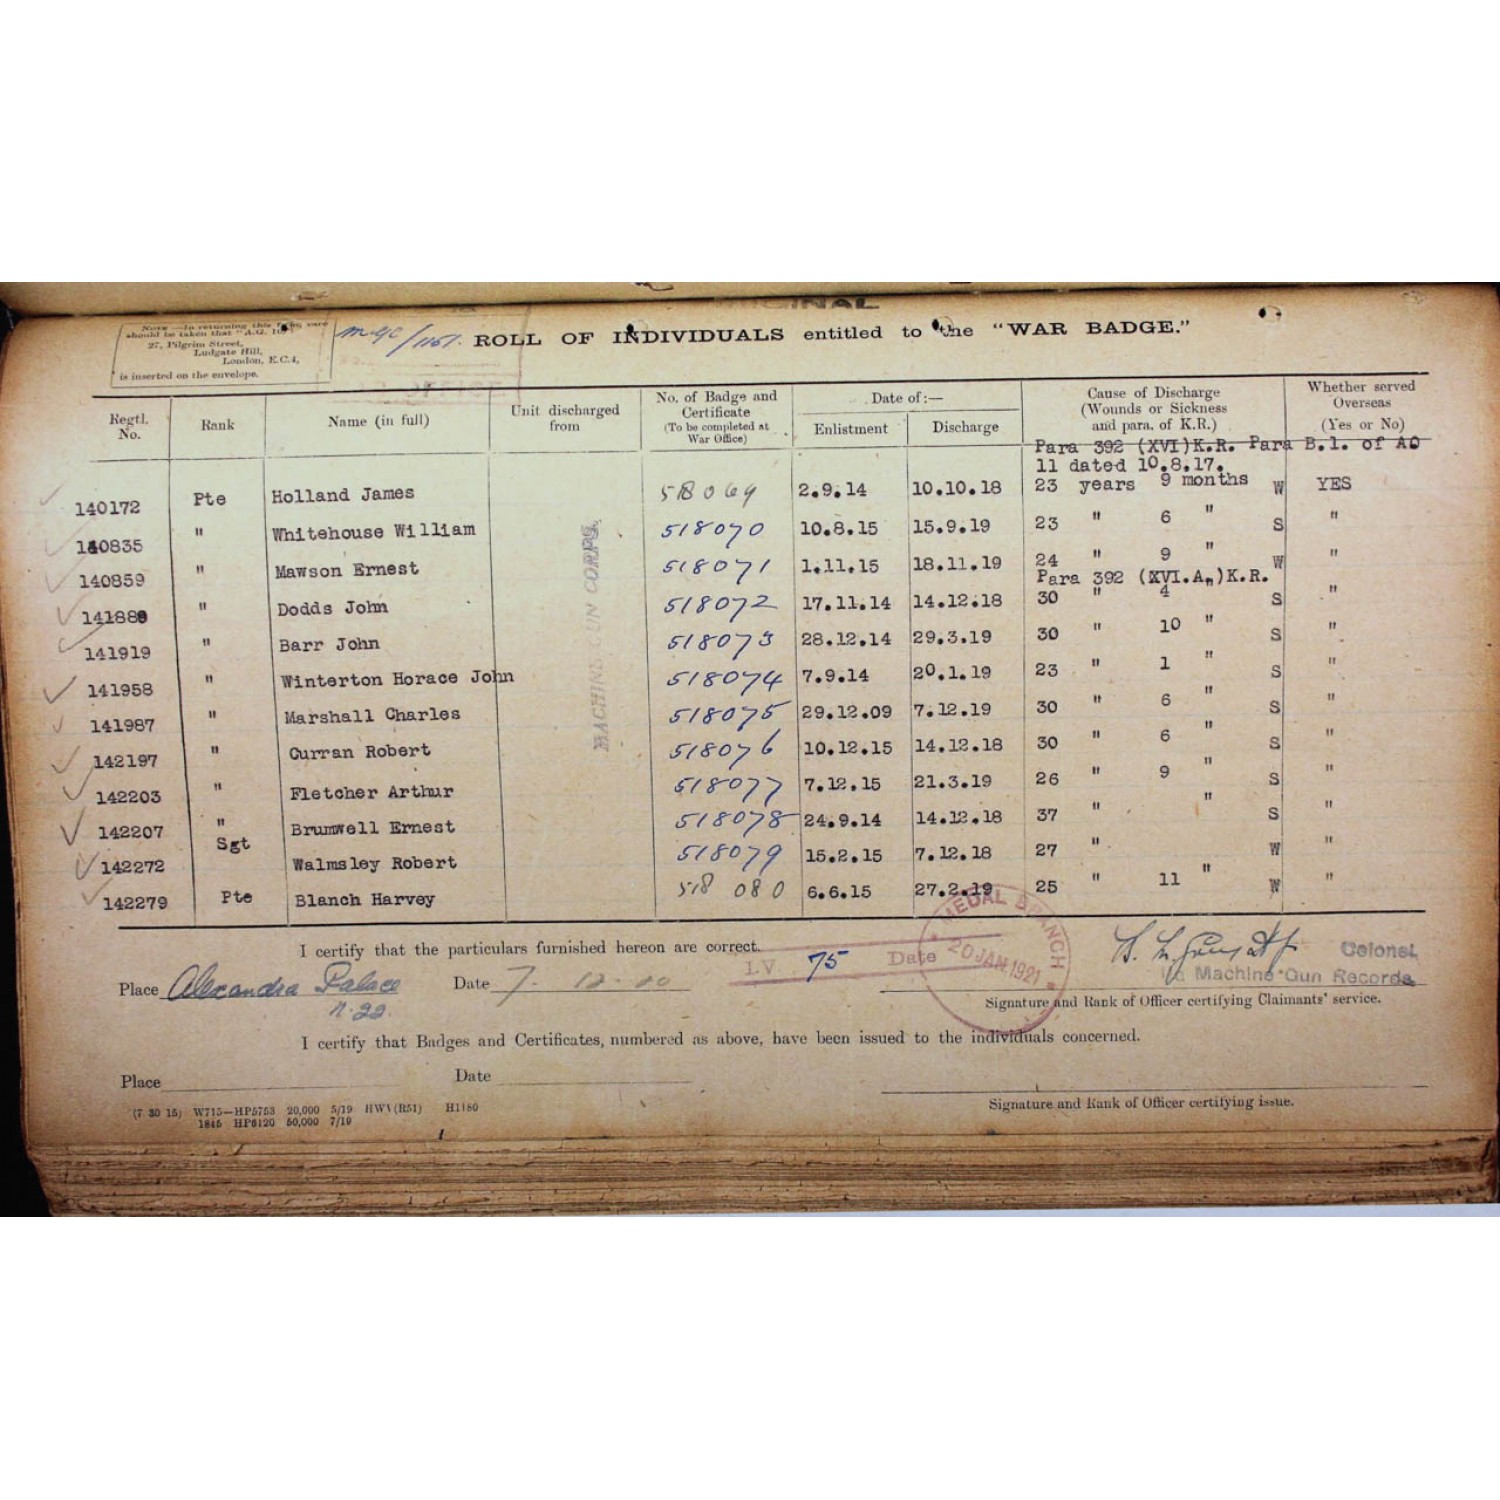 NOTE.—In returning this form care
should be taken that "A.G. 10"
27, Pilgrim Street,
Ludgate Hill,
London, E.C.4,
is inserted on the envelope.
ROLL OF INDIVIDUALS entitled to the "WAR BADGE."
Regtl. No. Rank Name (in full) Unit discharged from No. of Badge and Certificate (To be completed at War Office) Date of:— Enlistment Discharge Cause of Discharge (Wounds or Sickness and para. of K.R.) Whether served Overseas (Yes or No)
Para 392 (XVI)K.R. Para B.1. of AO
11 dated 10.8.17.
140172 Pte Holland James 518069 2.9.14 10.10.18 23 years 9 months W YES
140835 " Whitehouse William 518070 10.8.15 15.9.19 23 " 6 " S "
140859 " Mawson Ernest 518071 1.11.15 18.11.19 24 " 9 " W "
Para 392 (XVI.A.)K.R.
141889 " Dodds John 518072 17.11.14 14.12.18 30 " 4 " S "
141919 " Barr John 518073 28.12.14 29.3.19 30 " 10 " S "
141958 " Winterton Horace John 518074 7.9.14 20.1.19 23 " 1 " S "
141987 " Marshall Charles 518075 29.12.09 7.12.19 30 " 6 " S "
142197 " Curran Robert 518076 10.12.15 14.12.18 30 " 6 " S "
142203 " Fletcher Arthur 518077 7.12.15 21.3.19 26 " 9 " S "
142207 " Brumwell Ernest 518078 24.9.14 14.12.18 37 " " S "
142272 Sgt Walmsley Robert 518079 15.2.15 7.12.18 27 " W "
142279 Pte Blanch Harvey 518080 6.6.15 27.2.19 25 " 11 " W "
MACHINE GUN CORPS.
I certify that the particulars furnished hereon are correct.
LV 75 Date
MEDAL BRANCH
20 JAN. 1921
Colonel
Machine Gun Records
Place Alexandra Palace
N. 22.
Date 7. 12.
Signature and Rank of Officer certifying Claimants' service.
I certify that Badges and Certificates, numbered as above, have been issued to the individuals concerned.
Place Date
Signature and Rank of Officer certifying issue.
(7 30 15) W715—HP5753 20,000 5/19 HWV(R51) H1180
1845 HP6120 50,000 7/19